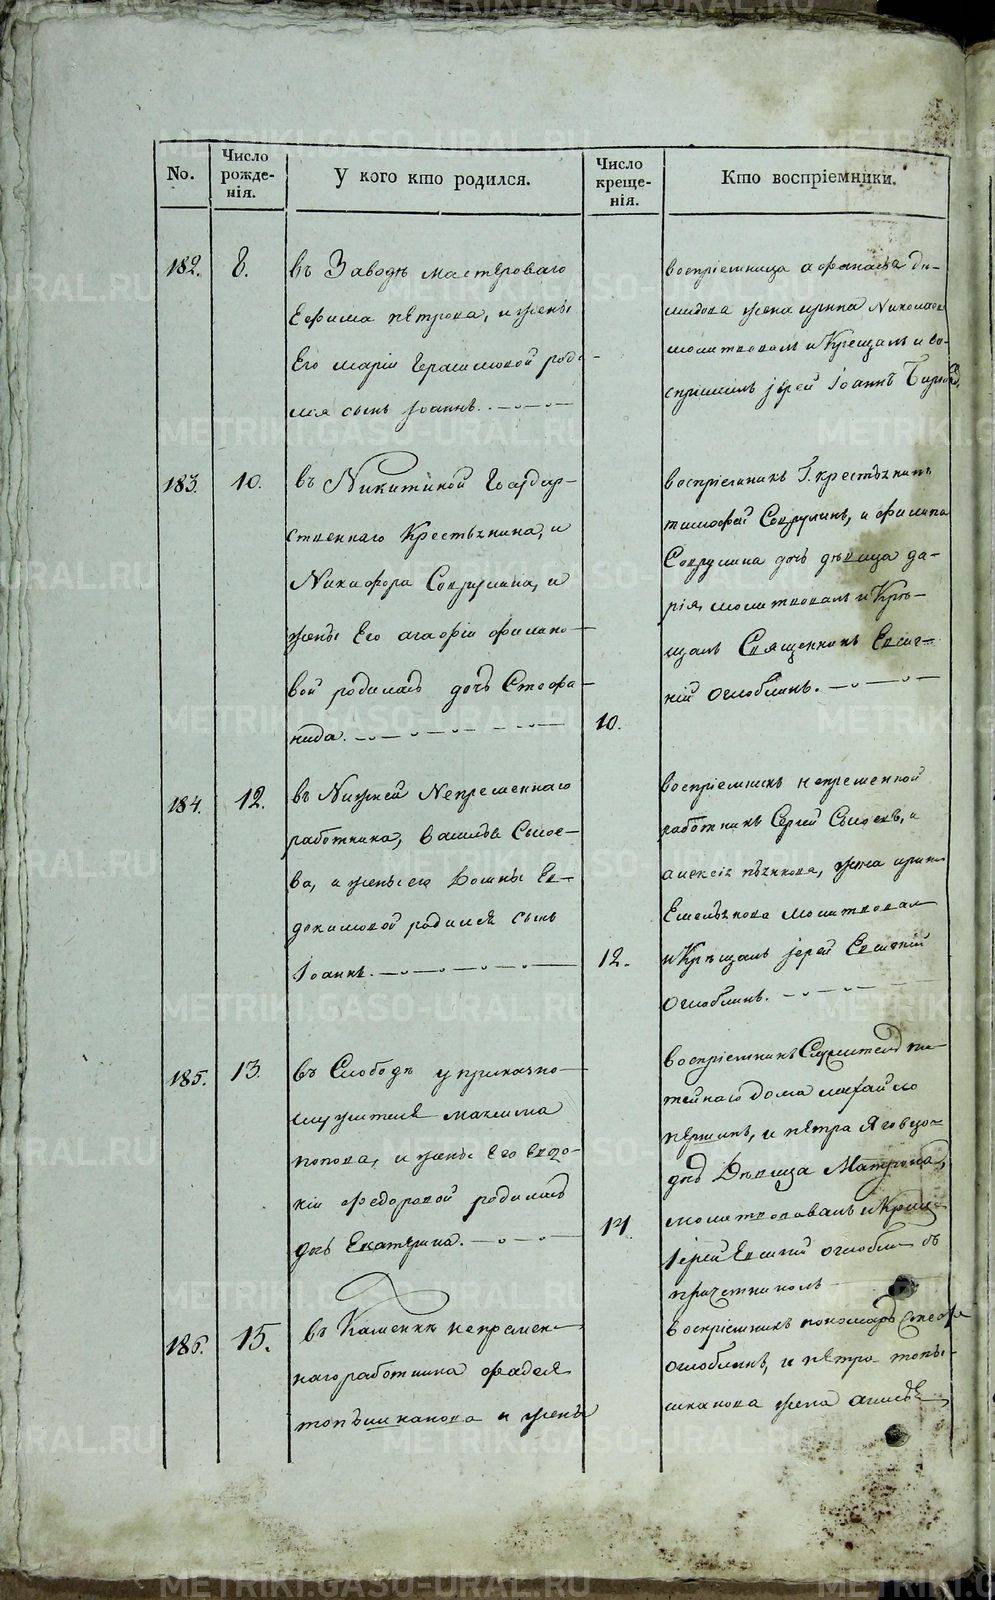 No.
Число рожде-нія.
У кого кто родился.
Число креще-нія.
Кто воспріемники.
182.
8.
въ Заводѣ мастероваго
Ефима петрова, и жены
Его маріи Герасимовой роди-
лся сынъ Іоаннъ.
воспріемница афанасья Ди-
мидова жена ирина Николаева
молитвовалъ и Крещалъ и во-
спріималъ іерей Іоаннъ
183.
10.
въ Никитиной Государ-
ственнаго Крестьянина, и
Никифора и
жены Его агафіи филипо-
вой родилась дочь Стефа-
нида.
10.
воспріемникъ Г. крестьянинъ
тимофей и филипа
дочь дѣвица да-
рія, молитвовалъ и Кре-
щалъ Священникъ Евсиг-
ній Оглоблинъ.
184.
12.
въ Нижней Непременнаго
работника, Василья Сысое-
ва, и жены его Домны Ев-
докимовой родился сынъ
Іоаннъ.
12.
воспріемникъ непременной
работникъ Сергей Сысоевъ, и
алексія жена ирина
Емельянова молитвовал
и Крещалъ іерей Евсигній
Оглоблинъ.
185.
13.
въ Слободѣ у приказно-
служителя максима
попова, и жены Его Евдо-
кіи Федоровой родилась
дочь Екатерина.
14
воспріемникъ Служитель пи-
тейнаго Дома михайло
и петра
дочь Дѣвица Матрона,
молитвовалъ и Крещ-
Іерей Евсигній оглоблин съ
причетникомъ
186.
15.
въ Каменкѣ непремен-
наго работника фадея
топышканова и жены
воспріемникъ пономарь Стефа
оглоблинъ, и петра топы-
шканова жена
METRIKI.GASO-URAL.RU